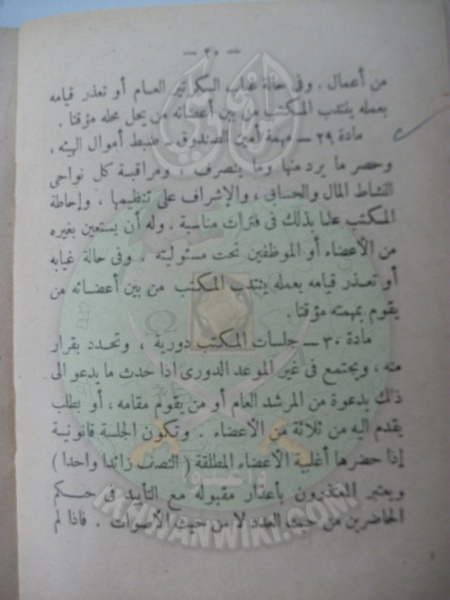 — ٢٠ —
من أعمال . وفى حالة غياب السكرتير العام أو تعذر قيامه
بعمله ينتدب المكتب من بين أعضائه من يحل محله مؤقتا .
مادة ٢٩ — مهمة أمين الصندوق – ضبط أموال الهيئه ،
وحصر ما يرد منها وما يتصرف ، ومراقبة كل نواحى
النشاط المالى والحسابى ، والإشراف على تنظيمها ، وإحاطة
المكتب علما بذلك فى فترات مناسبة . وله أن يستعين بغيره
من الأعضاء أو الموظفين تحت مسئوليته . وفى حالة غيابه
أو تعذر قيامه بعمله ينتدب المكتب من بين أعضائه من
يقوم بمهمته مؤقتا .
مادة ٣٠ — جلسات المكتب دورية ، وتحدد بقرار
منه ، ويجتمع فى غير الموعد الدورى اذا حدث ما يدعو الى
ذلك بدعوة من المرشد العام أو من يقوم مقامه ، أو بطلب
يقدم اليه من ثلاثة من الأعضاء . وتكون الجلسة قانونية
إذا حضرها أغلبية الأعضاء المطلقة ( النصف زائدا واحدا )
ويعتبر المعتذرون بأعذار مقبوله مع التأييد فى حكم
الحاضرين من حيث العدد لا من حيث الأصوات . فاذا لم
IKHWANWIKI.COM